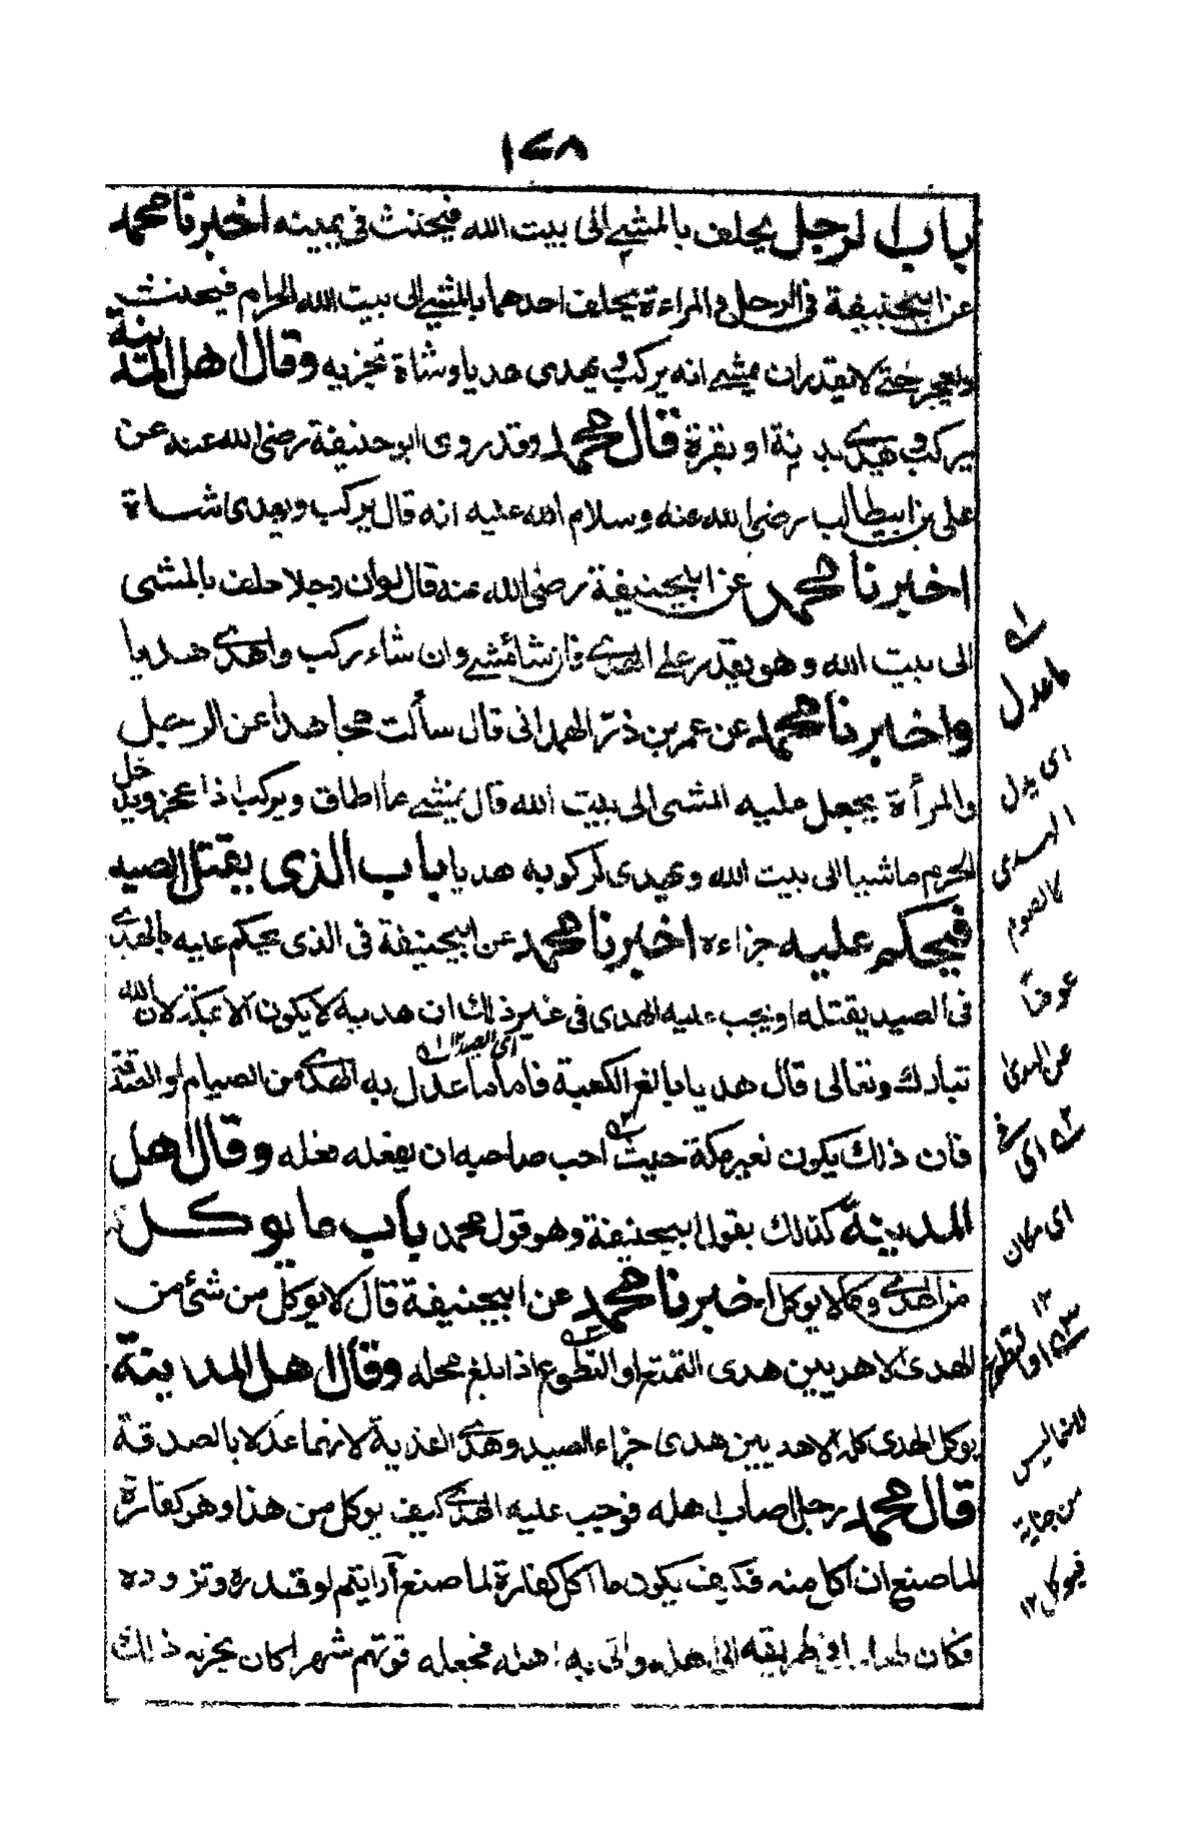 ١٧٨
باب الرجل يحلف بالمشي الى بيت الله فيحنث في يمينه اخبرنا محمد
عن ابيحنيفة في الرجل والمراءة يحلف احدهما بالمشي الى بيت الله الحرام فيحنث
ويعجز حتى لا يقدر ان يمشي انه يركب ويهدى هديا وشاة تجزيه وقال اهل المدينة
يركب ويهدي بدنة او بقرة قال محمد وقد روى ابو حنيفة رضى الله عنه عن
على بن ابيطالب رضى الله عنه وسلام الله عليه انه قال يركب ويهدى شاة
اخبرنا محمد عن ابيحنيفة رضى الله عنه قال لو ان رجلا حلف بالمشى
الى بيت الله وهو يقدر على الهدي فان شا مشى وان شاء ركب واهدى هديا
واخبرنا محمد عن عمر بن ذر الهمدانى قال سألت مجاهدا عن الرجل
والمرأة يجعل عليه المشى الى بيت الله قال يمشى ما اطاق ويركب اذا عجز ويدخل
الحرم ماشيا الى بيت الله ويهدى لركوبه هديا باب الذى يقتل الصيد
فيحكم عليه جزاءه اخبرنا محمد عن ابيحنيفة فى الذى يحكم عليه بالهدي
فى الصيد يقتله او يجب عليه الهدى فى غير ذلك ان هديه لا يكون الا بمكة لان الله
تبارك وتعالى قال هديا بالغ الكعبة فاما ما عدل به الهدي من الصيام او الصدقة
اى الصيد ١٢
فان ذلك يكون بغير مكة حيث احب صاحبه ان يفعله فعله وقال اهل
المدينة كذلك بقول ابيحنيفة وهو قول محمد باب ما يوكل
من الهدي وما لا يوكل اخبرنا محمد عن ابيحنيفة قال لا يوكل من شئ من
الهدى الا هديين هدى التمتع او التطوع اذا بلغ محله وقال اهل المدينة
يوكل الهدى كله الا هديين هدى جزاء الصيد وهدي الفدية لانهما عدلا بالصدقة
قال محمد رجل اصاب اهله فوجب عليه الهدي كيف يوكل من هذا وهو كفارة
لما صنع ان اكل منه فكيف يكون ما اكل كفارة لما صنع أرايتم لو قدره وتزوده
فكان طعاما فى طريقه الى اهله واتى به اهله فجعله قوتهم شهرا كان يجزيه ذلك
ما عدل
اى بدل
الهدى
كالصوم
عوضا
عن الهدى
اى فى
اى مكان
١٢
او التطوع
من جناية
فيوكل ١٢